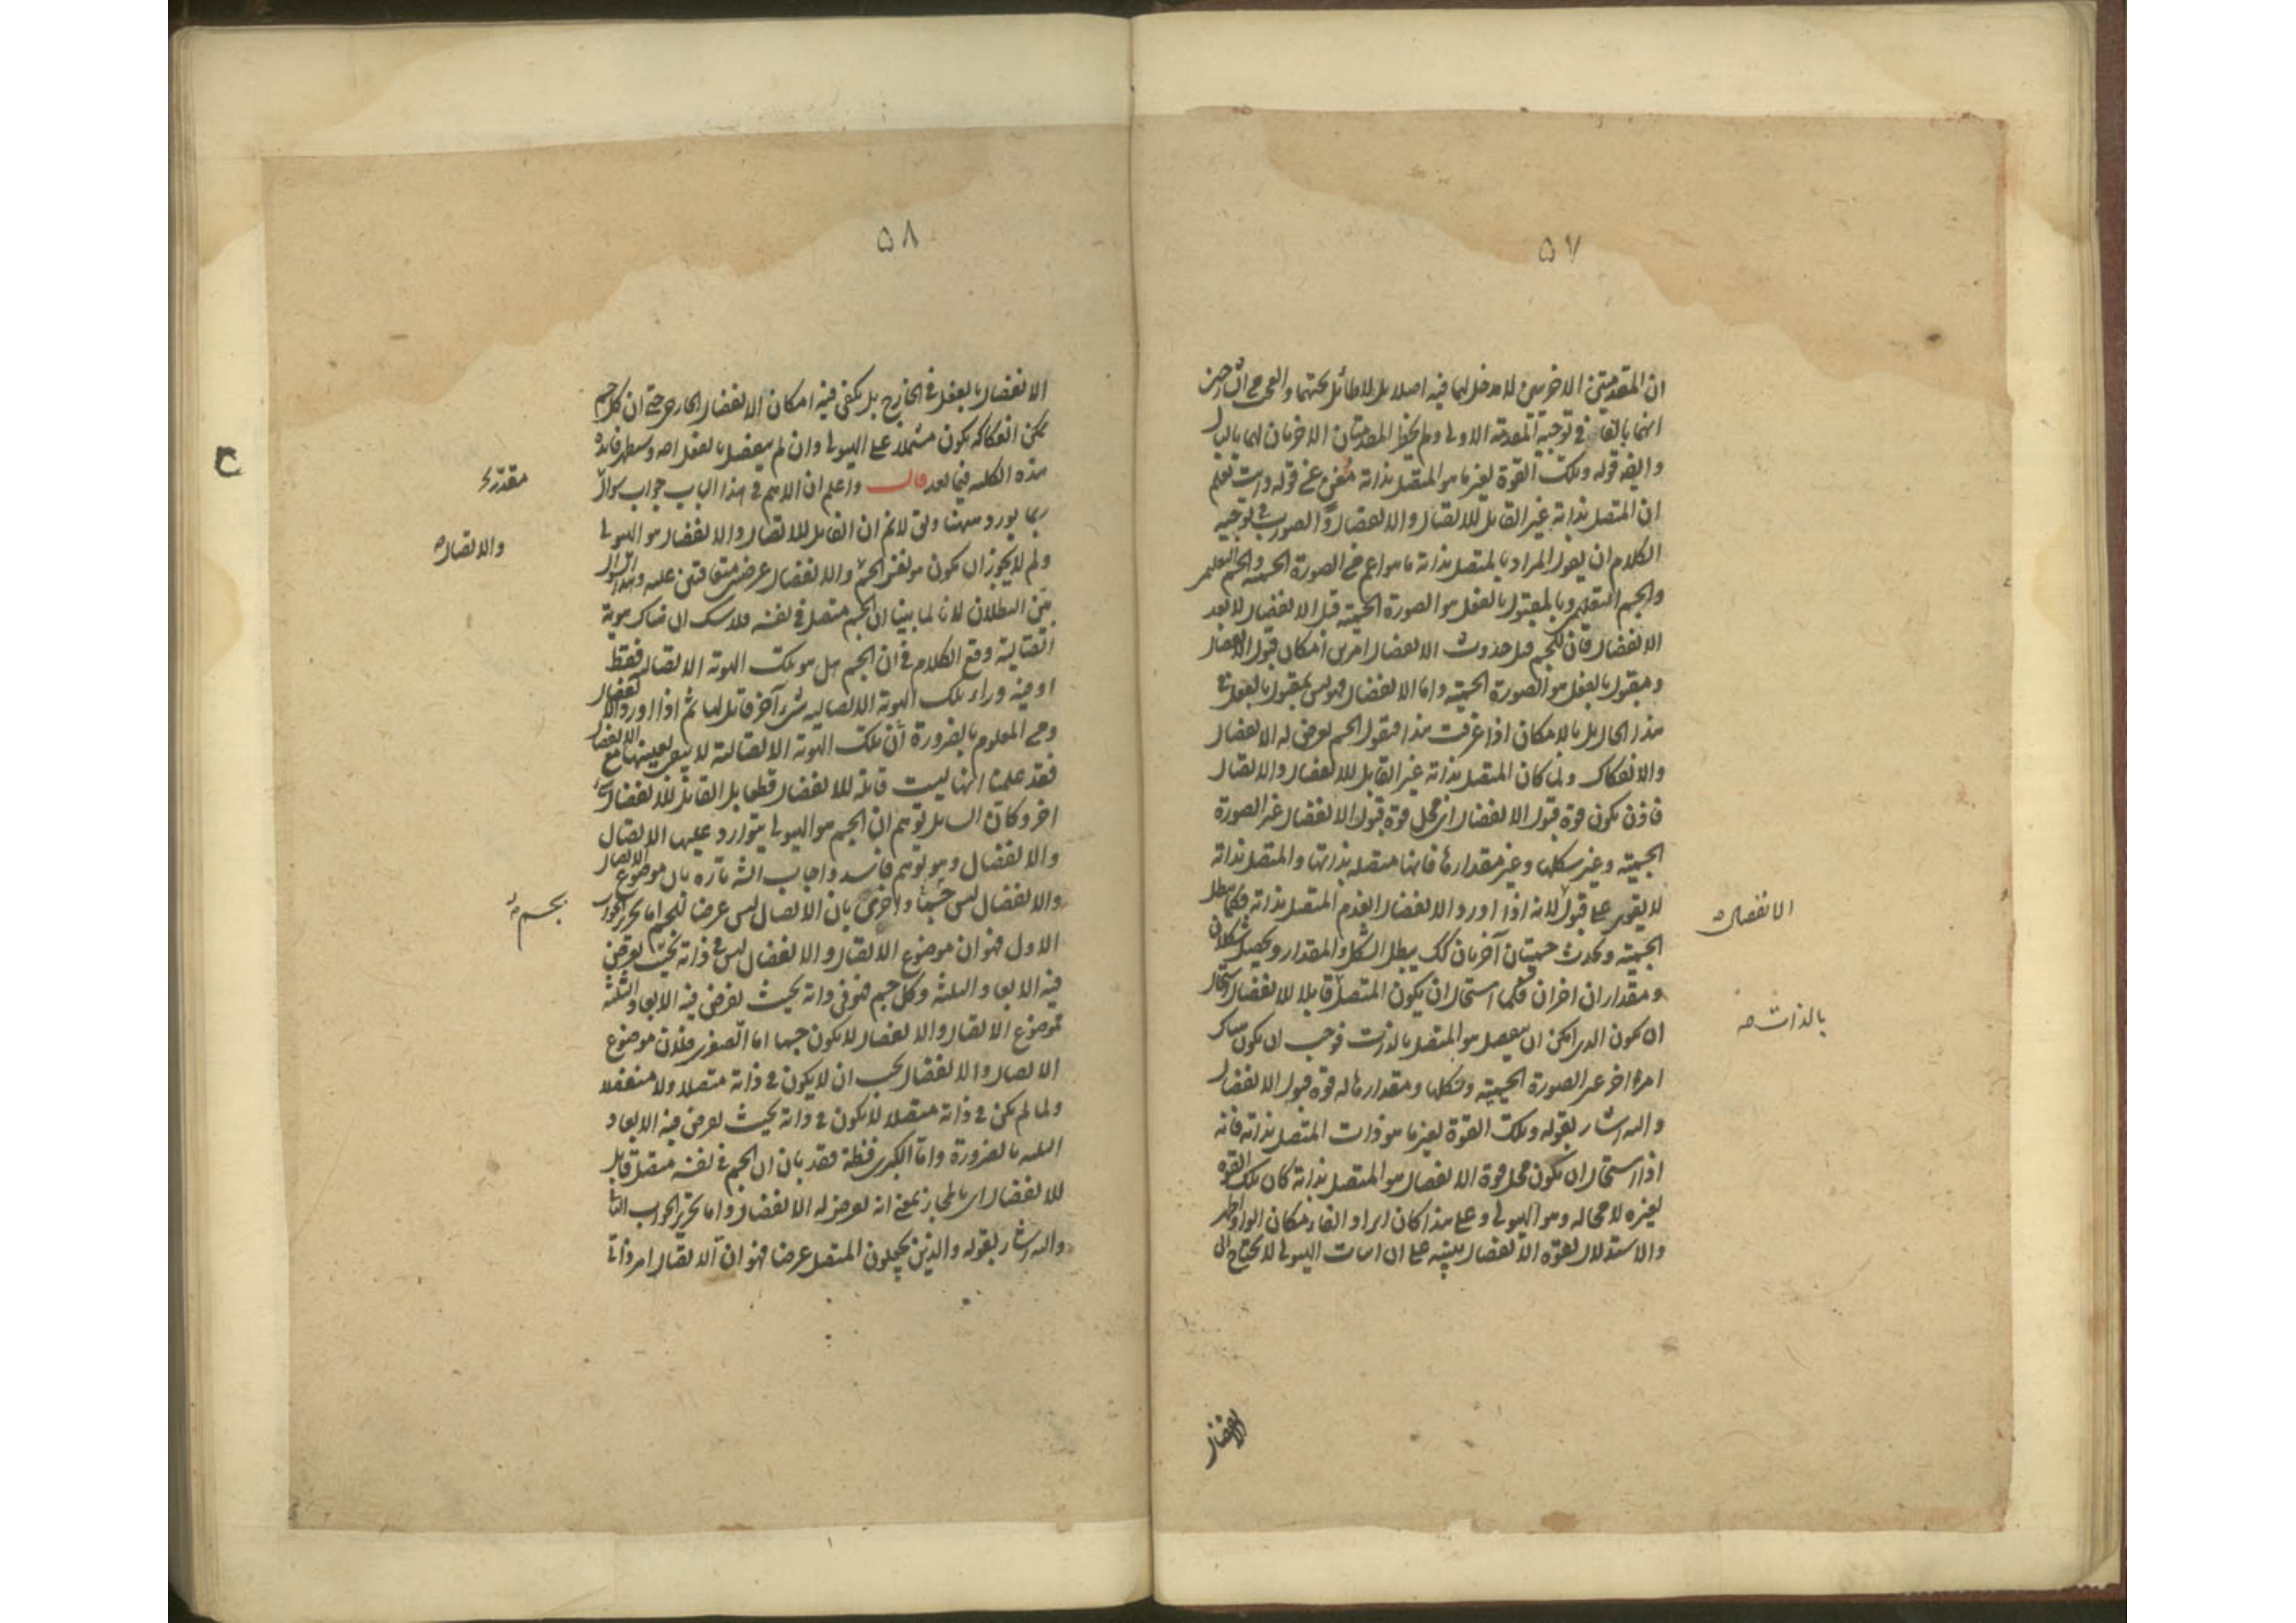 ٥٧
ان المقدمتين الاخريين لا مدخل لهما فيه اصلا بل لا طائل تحتهما والعجب ان
انهما بالغا في توجيه المقدمة الاولى ولم يخطر المقدمتان الاخريان لهما بالبال
وايضا قوله وتلك القوة لغير ما هو المتصل بذاته مغن عن قوله وانت تعلم
ان المتصل بذاته غير القابل للاتصال والانفصال والصواب في توجيه
الكلام ان يقول المراد بالمتصل بذاته ما هو اعم من الصورة الجسمية والجسم التعليمي
والجسم التعليمي وبالمقبول بالفعل هو الصورة الجسمية قبل الانفصال لا بعد
الانفصال فان للجسم قبل حدوث الانفصال امرين امكان قبول الانفصال
ومقبول بالفعل هو الصورة الجسمية واما الانفصال فهو ليس بمقبول بالفعل في
هذا الحال بل بالامكان اذا عرفت هذا فنقول الجسم يعرض له الانفصال
والانفكاك ولما كان المتصل بذاته غير القابل للانفصال والاتصال
فاذن يكون قوة قبول الانفصال اى محل قوة قبول الانفصال غير الصورة
الجسمية وغير شكلها وغير مقدارها فانها متصلة بذاتها والمتصل بذاته
لا يقوى على قبول لانه اذا اورد الانفصال انعدم المتصل بذاته فكما يبطل
الانفصال صح
الجسمية ويحدث جسميتان آخريان كك يبطل الشكل والمقدار ويحصل شكلان
ومقداران اخران فكما استحال ان يكون المتصل قابلا للانفصال استحال
بالذات صح
ان يكون الذى امكن ان ينفصل هو المتصل بالذات فوجب ان يكون هناك
امر اخر غير الصورة الجسمية وشكلها ومقدارها له قوة قبول الانفصال
واليه اشار بقوله وتلك القوة لغير ما هو ذات المتصل بذاته فانه
اذا استحال ان يكون محل قوة الانفصال هو المتصل بذاته كان تلك القوة
لغيره لا محالة وهو الهيولى وعلى هذا كان ايراد الفاء مكان الواو اظهر
والاستدلال بقوة الانفصال تنبيه على ان اثبات الهيولى لا يحتاج الى
الانفصال
٥٨
الانفصال بالفعل في الخارج بل يكفى فيه امكان الانفصال الخارجى حتى ان كل جسم
يمكن انفكاكه يكون مشتملا على الهيولى وان لم ينفصل بالفعل اصلا وستظهر فائدة
هذه الكلمة فيما بعد قال واعلم ان الاهم في هذا الباب جواب سؤال
مقدر
ربما يورد ههنا وهو لانم ان القابل للاتصال والانفصال هو الهيولى
ولم لا يجوز ان يكون هو نفس الجسم والانفصال عرضين متعاقبين عليه وهذا السؤال
والاتصال صح
بين البطلان لانا لما بينا ان الجسم متصل في نفسه فلا شك ان هناك هوية
اتصالية وقع الكلام في ان الجسم هل هو تلك الهوية الاتصالية فقط
او فيه وراء تلك الهوية الاتصالية شىء آخر قابل لها ثم اذا اورد الانفصال
ومن المعلوم بالضرورة ان تلك الهوية الاتصالية لا تبقى بعينها مع الانفصال
فقد علمنا انها ليست قابلة للانفصال قطعا بل القابل للانفصال شىء
اخر وكان السايل توهم ان الجسم هو الهيولى يتوارد عليها الاتصال
والانفصال وهو توهم فاسد واجاب الش تارة بان موضوع الاتصال
والانفصال ليس جسما واخرى بان الاتصال ليس عرضا للجسم اما تحرير الجواب
بجسم صح
الاول فهو ان موضوع الاتصال والانفصال ليس في ذاته بحيث يفرض
فيه الابعاد الثلثة وكل جسم فهو في ذاته بحيث يفرض فيه الابعاد الثلثة
فموضوع الاتصال والانفصال لا يكون جسما اما الصغرى فلان موضوع
الاتصال والانفصال يجب ان لا يكون في ذاته متصلا ولا منفصلا
ولما لم يكن في ذاته متصلا لا يكون في ذاته بحيث يفرض فيه الابعاد
الثلثة بالضرورة واما الكبرى فظة فقد بان ان الجسم في نفسه متصل قابل
للانفصال اى بالمجاز بمعنى انه يعرض له الانفصال واما تحرير الجواب الثانى
واليه اشار بقوله والذين يجعلون المتصل عرضا فهو ان الاتصال امر ذاتى
ح